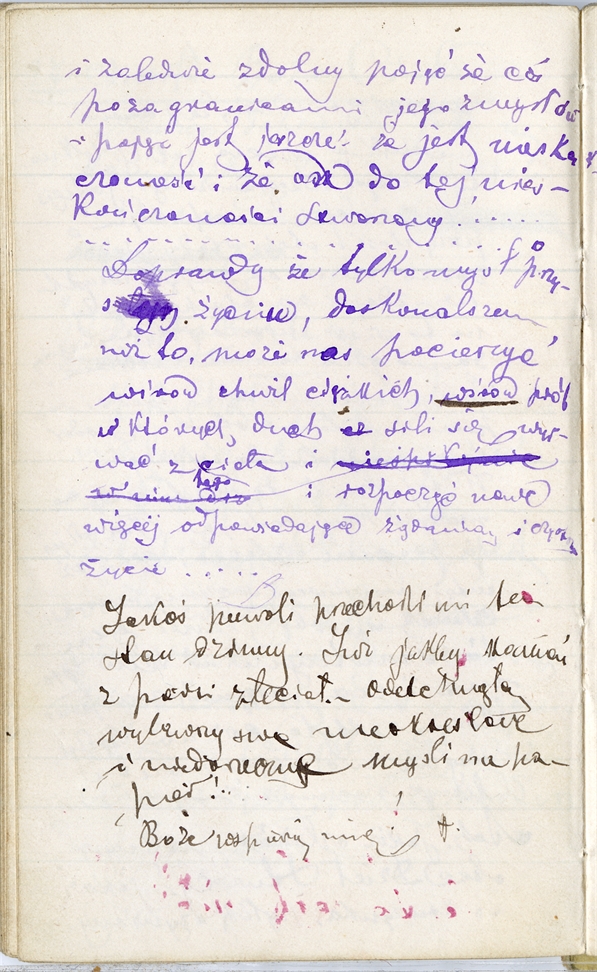 i zaledwie zdolny pojąć że coś
poza granicami jego zmysłów
i pojąć jest że jest niesko-
czoność i że on do tej nies-
kończoności stworzony......
Doprawdy że tylko myśl o przy-
szłym życiu, doskonalszem
niż to, może nas pocieszyć
wśród chwil ciężkich, wśród prób
w których duch sili się wyr-
wać z ciała i
i rozpocząć nowe
więcej odpowiadające żądaniom i
życie.....
Jakoś powoli przechodzi mi ten
stan dziwny. Już jakby kamień
z piersi zleciał. – odetchnęłam
wylewszy swe nieokreślone
i niedorzeczne myśli na pa-
pier!
Boże mię!